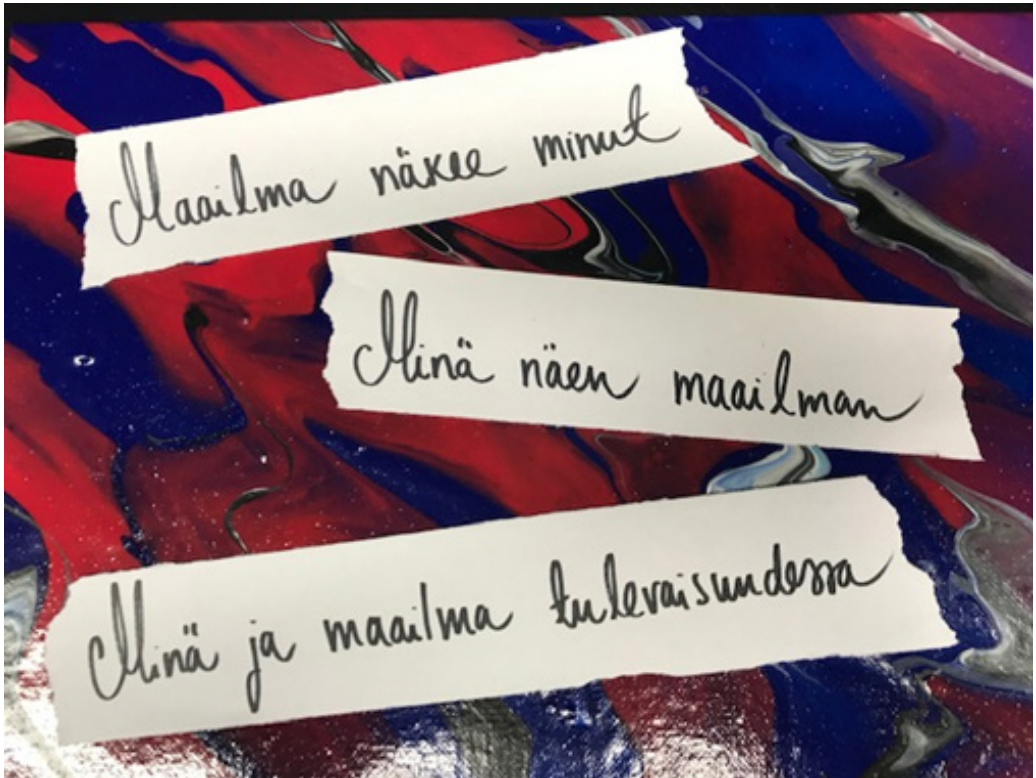 Maailma näkee minut
Minä näen maailman
Minä ja maailma tulevaisuudessa